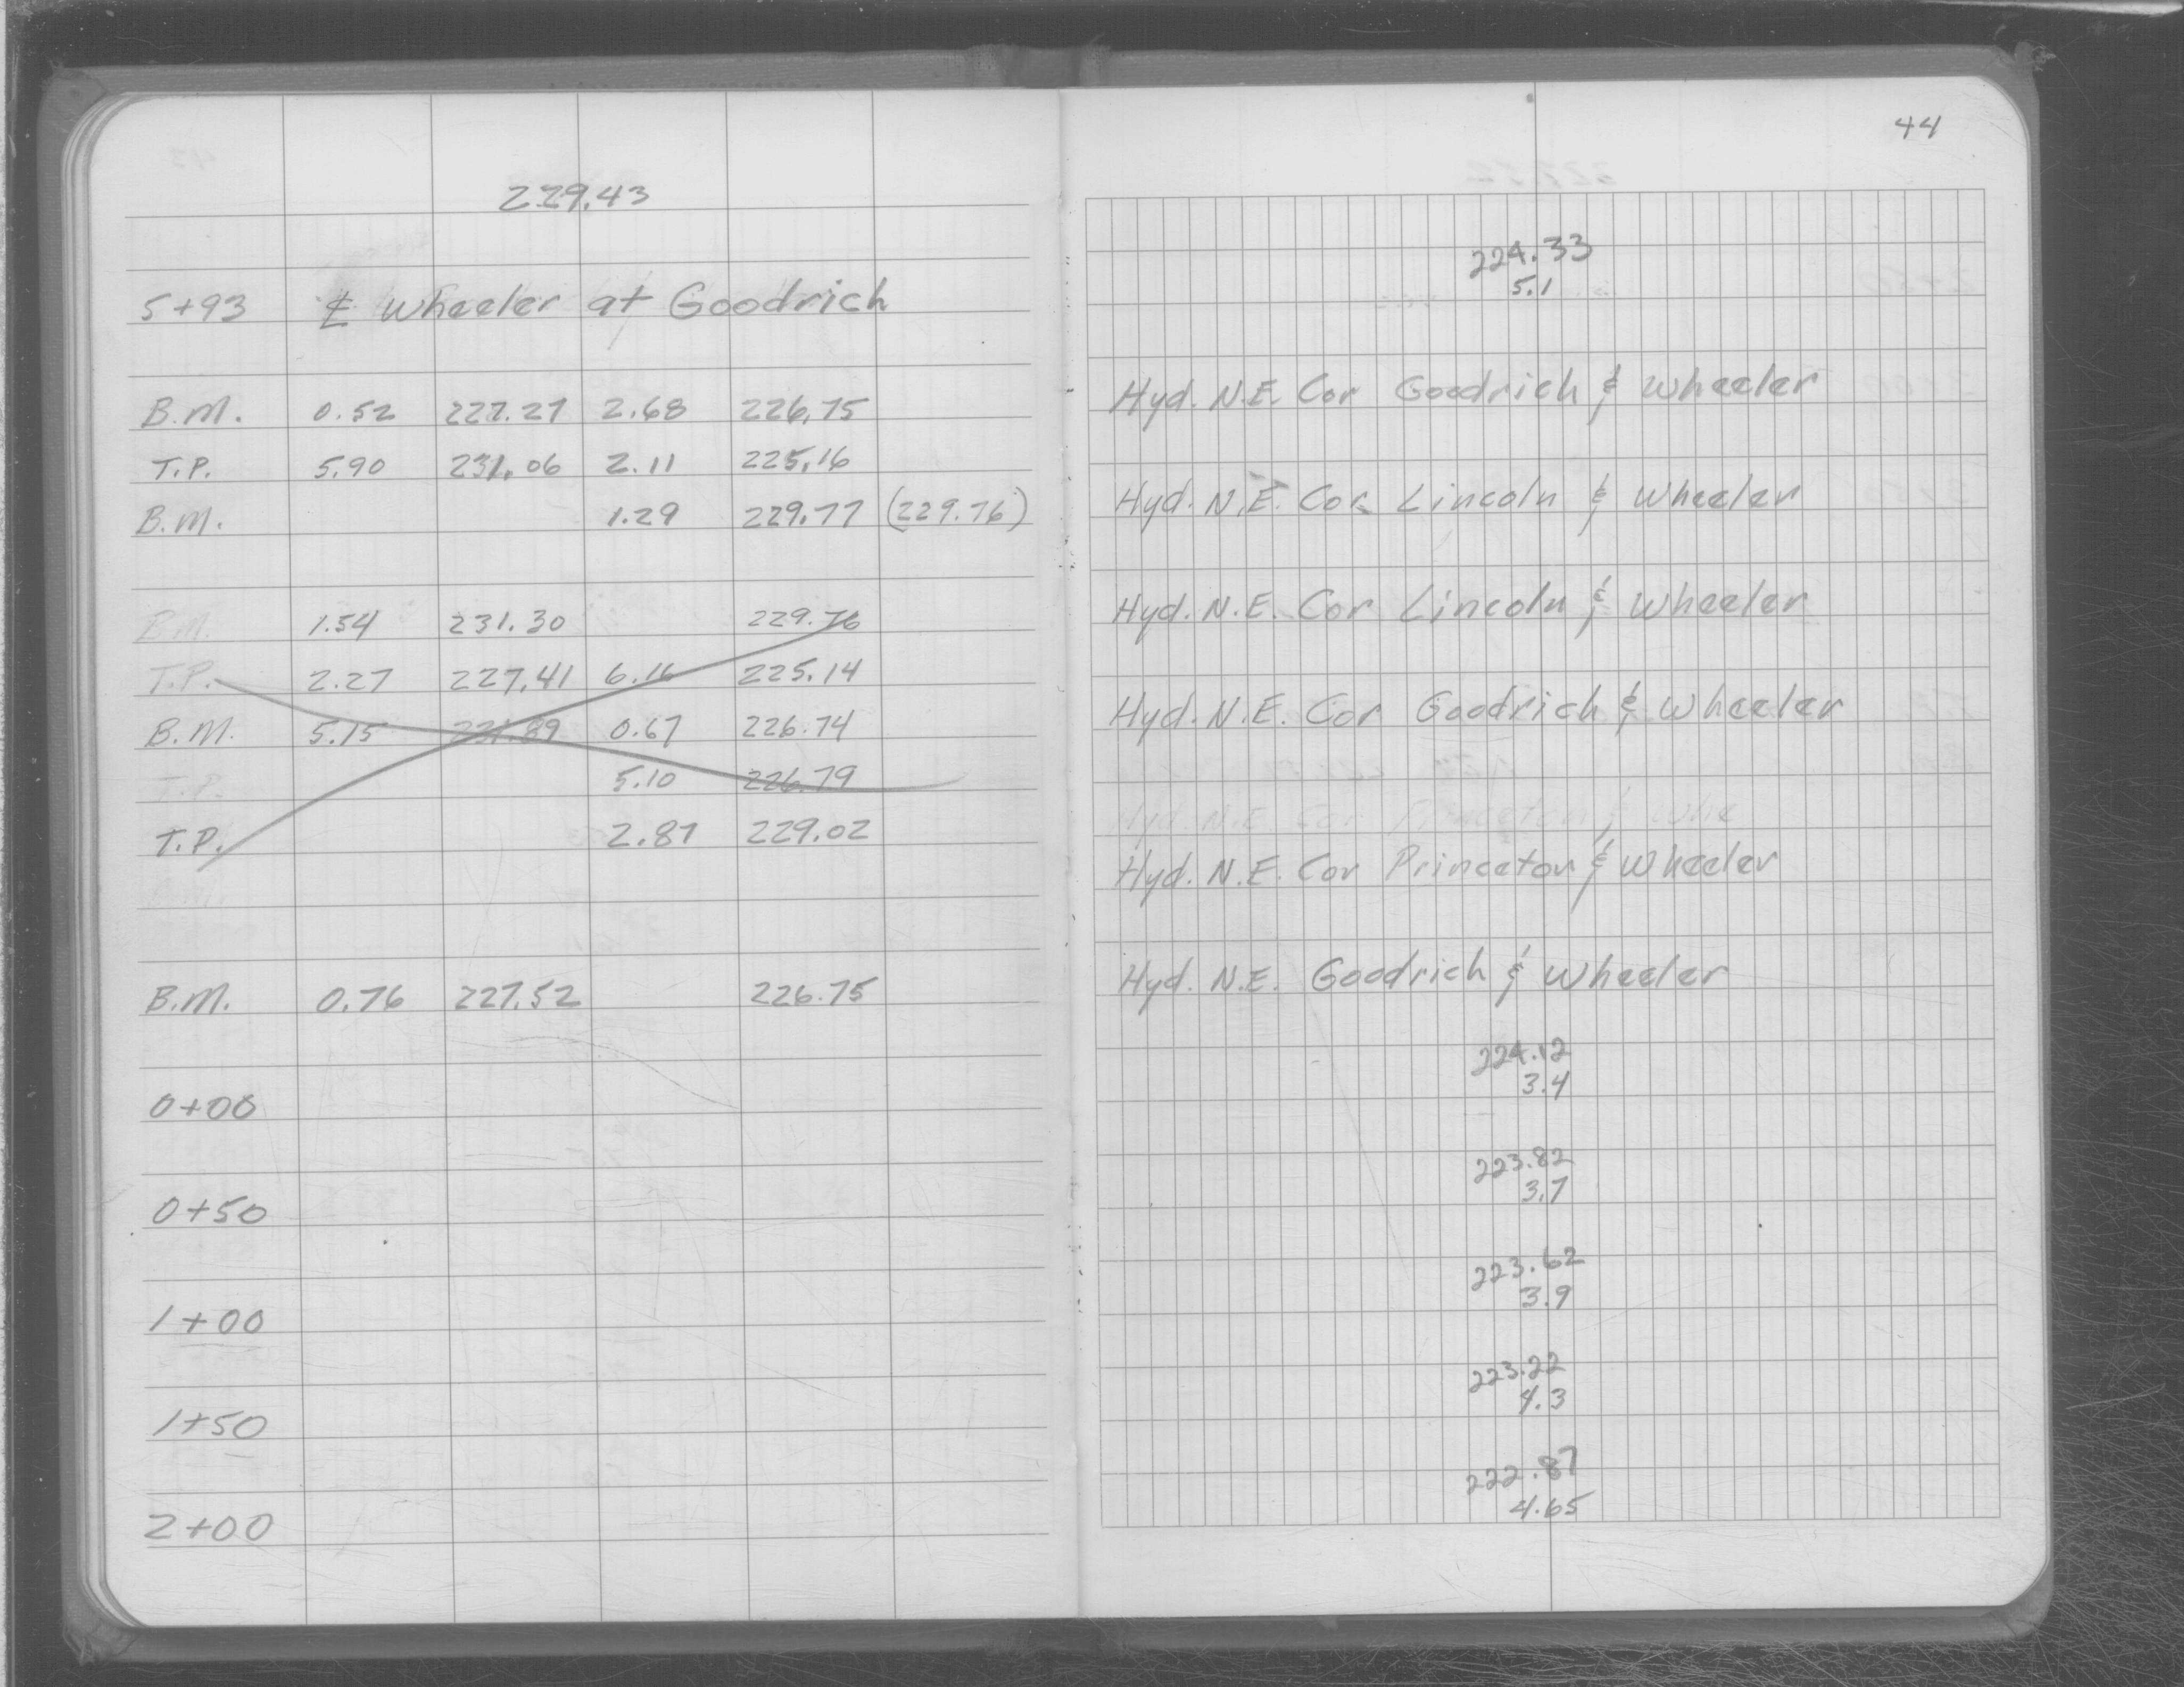 44
229.43
224.33
5.1
5+93 ℄ Wheeler at Goodrich
B.M. 0.52 227.27 2.68 226.75 Hyd. N.E. Cor Goodrich & Wheeler
T.P. 5.90 231.06 2.11 225.16
B.M. 1.29 229.77 (229.76) Hyd. N.E. Cor. Lincoln & Wheeler
B.M. 1.54 231.30 229.76 Hyd. N.E. Cor Lincoln & Wheeler
T.P. 2.27 227.41 6.16 225.14
B.M. 5.15 231.89 0.67 226.74 Hyd. N.E. Cor Goodrich & Wheeler
T.P. 5.10 226.79
Hyd. N.E. Cor Princeton & Whe
T.P. 2.87 229.02 Hyd. N.E. Cor Princeton & Wheeler
B.M.
B.M. 0.76 227.52 226.75 Hyd. N.E. Goodrich & Wheeler
224.12
0+00 3.4
223.82
0+50 3.7
223.62
1+00 3.9
223.22
1+50 4.3
222.87
2+00 4.65